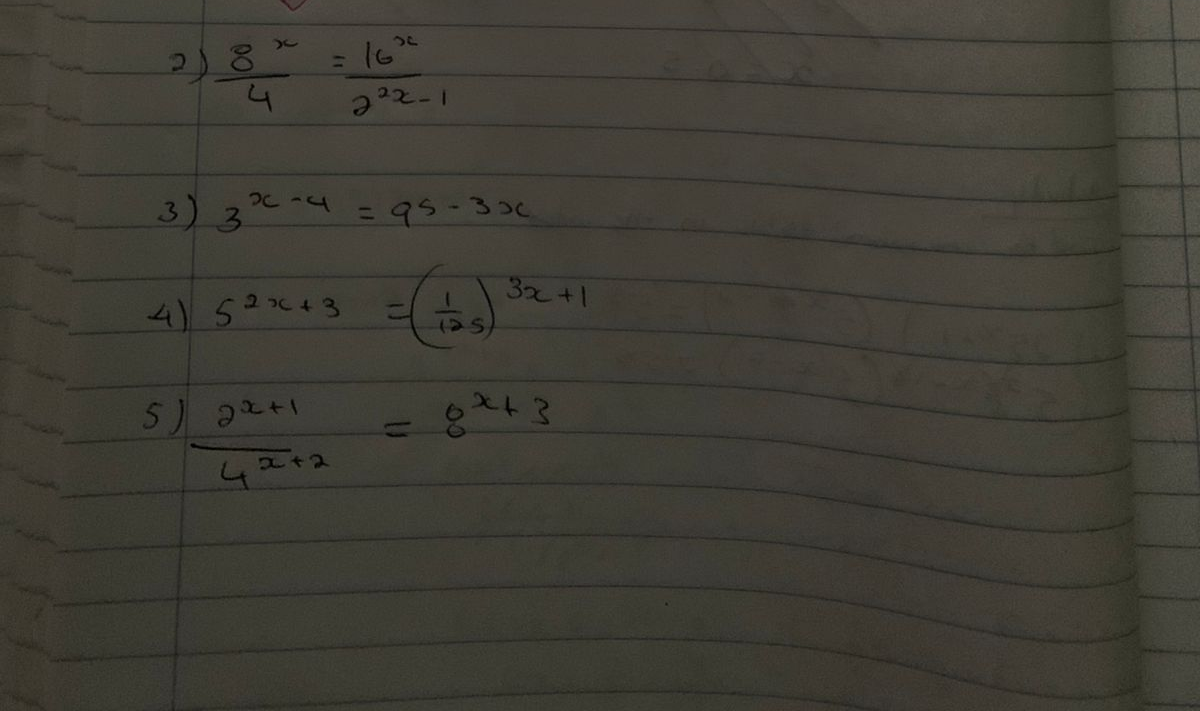 2) 8^x/4 = 16^x/2^2x-1
3) 3^x-4 = 95-3x
4) 5^2x+3 = (1/125)^3x+1
5) 2^x+1/4^x+2 = 8^x+3